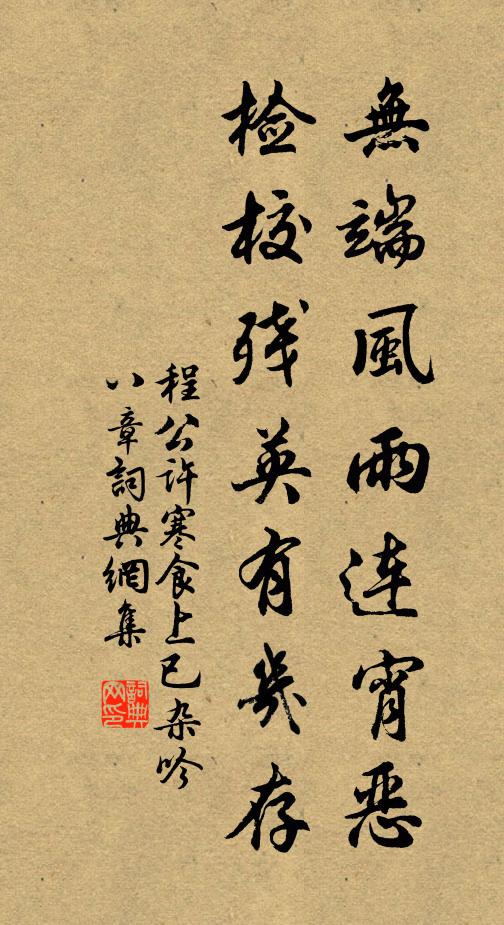 無端風雨連宵惡
檢校殘英有幾存
程公許寒食上巳杂吟
八章詞典網集
詞典
网印